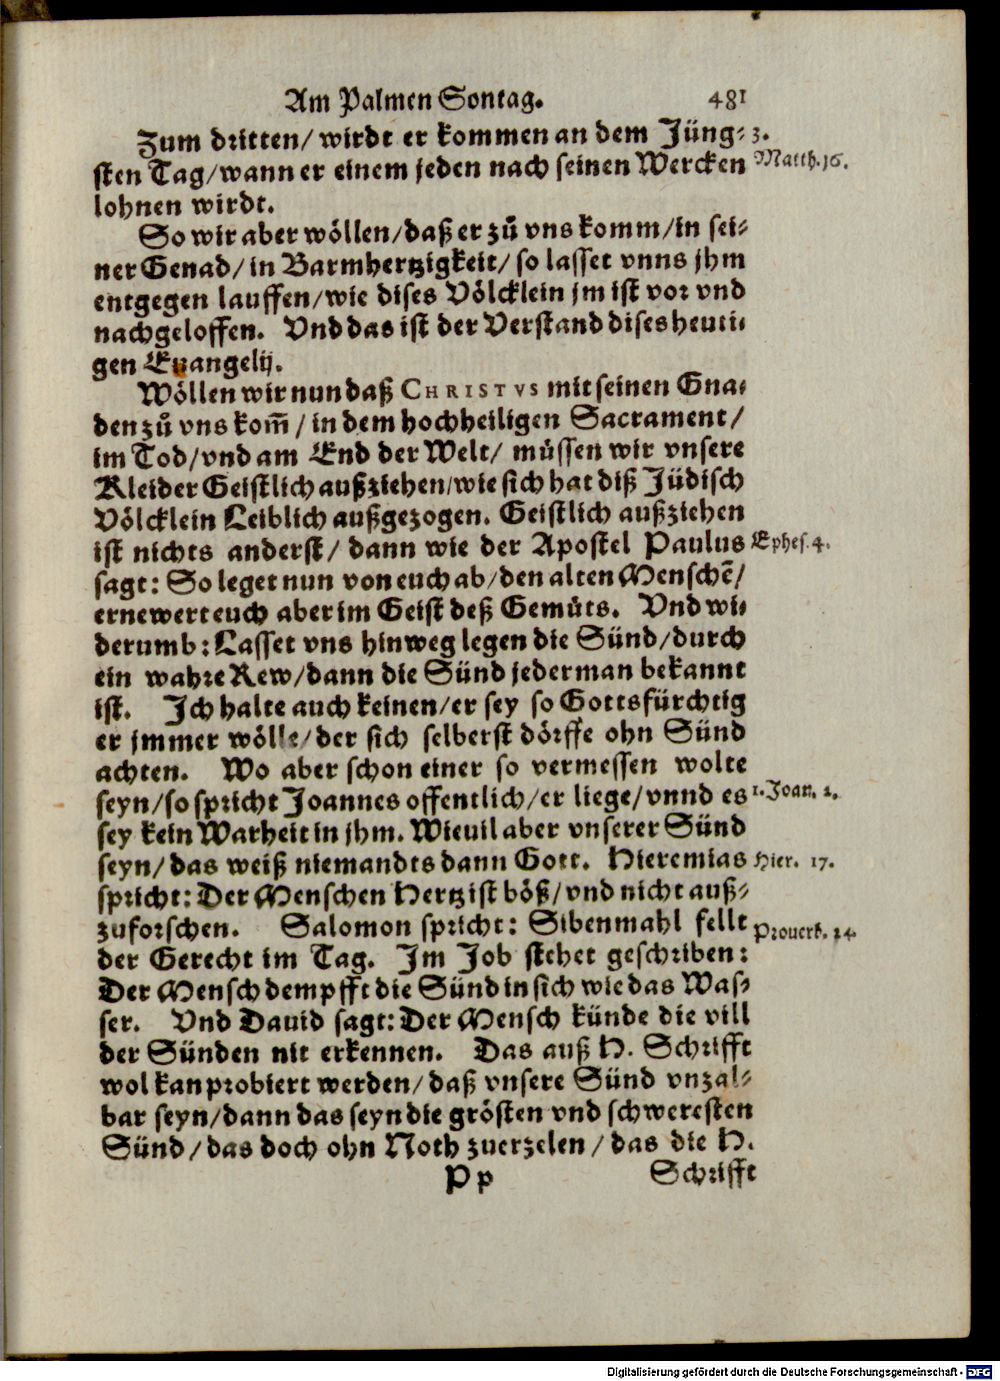 Am Palmen Sontag. 481
Zum dritten/ wirdt er kommen an dem Jüng- 3.
sten Tag/wann er einem jeden nach seinen Wercken Matth. 16.
lohnen wirdt.
So wir aber wöllen/daß er zů vns komm/in sei-
ner Genad/in Barmhertzigkeit/ so lasset vnns jhm
entgegen lauffen/wie dises Völcklein jm ist vor vnd
nachgeloffen. Vnd das ist der Verstand dises heuti-
gen Euangelij.
Wöllen wir nun daß CHRISTVS mit seinen Gna-
den zů vns kom̃/ in dem hochheiligen Sacrament/
im Tod/vnd am End der Welt/ müssen wir vnsere
Kleider Geistlich außziehen/wie sich hat diß Jüdisch
Völcklein Leiblich außgezogen. Geistlich außziehen
ist nichts anderst/ dann wie der Apostel Paulus Ephes. 4.
sagt: So leget nun von euch ab/den alten Menschẽ/
ernewert euch aber im Geist deß Gemüts. Vnd wi-
derumb: Lasset vns hinweg legen die Sünd/durch
ein wahre Rew/dann die Sünd jederman bekannt
ist. Ich halte auch keinen/er sey so Gottsfürchtig
er jmmer wölle/der sich selberst dörffe ohn Sünd
achten. Wo aber schon einer so vermessen wolte
seyn/so spricht Joannes offentlich/er liege/vnnd es 1. Joan. 1.
sey kein Warheit in jhm. Wieuil aber vnserer Sünd
seyn/das weiß niemandts dann Gott. Hieremias Hier. 17.
spricht: Der Menschen Hertz ist böß/vnd nicht auß-
zuforschen. Salomon spricht: Sibenmahl fellt Prouerb. 24.
der Gerecht im Tag. Im Job stehet geschriben:
Der Mensch dempfft die Sünd in sich wie das Was-
ser. Vnd Dauid sagt: Der Mensch künde die vill
der Sünden nit erkennen. Das auß H. Schrifft
wol kan probiert werden/daß vnsere Sünd vnzal-
bar seyn/dann das seyn die grösten vnd schweresten
Sünd/das doch ohn Noth zuerzelen/das die H.
Pp Schrifft
Digitalisierung gefördert durch die Deutsche Forschungsgemeinschaft - DFG